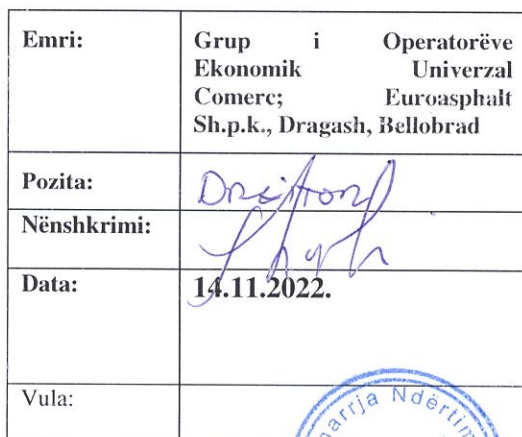 Emri: Grup i Operatorëve
Ekonomik Univerzal
Comerc; Euroasphalt
Sh.p.k., Dragash, Bellobrad
Pozita: Dreitori
Nënshkrimi:
Data: 14.11.2022.
Vula:
Ndërtim